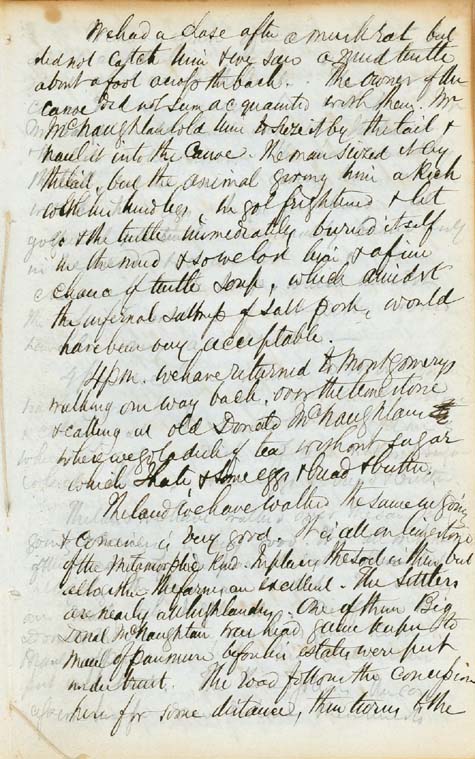 We had a chase after a muskrat but
did not catch him & we saw a mud turtle
about a foot across the back. The owner of the
canoe did not seem acquainted with them. Mr
McNaughtan told him to seize it by the tail &
haul it into the Canoe. The man seized it by
the tail, but the animal giving him a kick
with his hind legs, he got frightened & let
go & the turtle immediately buried itself
in the mud & so we lost him & a fine
chance of turtle soup, which amidst
the infernal saltness of salt pork, would
have been very acceptable.
4 p.m. We have returned to Montgomerys
walking our way back, over the limestone
& calling at old Donald McNaughtan
where we got a dish of tea without sugar
which I hate & some eggs & bread & butter.
The land we have walked the same as going
& coming is very good. It is all on limestone
of the Metamorphic kind. In places the soil is thin but
all on the farms are excellent. The settlers
are nearly all highlanders. One of them Big
McNaughtan was head game keeper to
Maule of Panmure before his estates were put
under trust. The road follows the concession
here for some distance, then turns to the